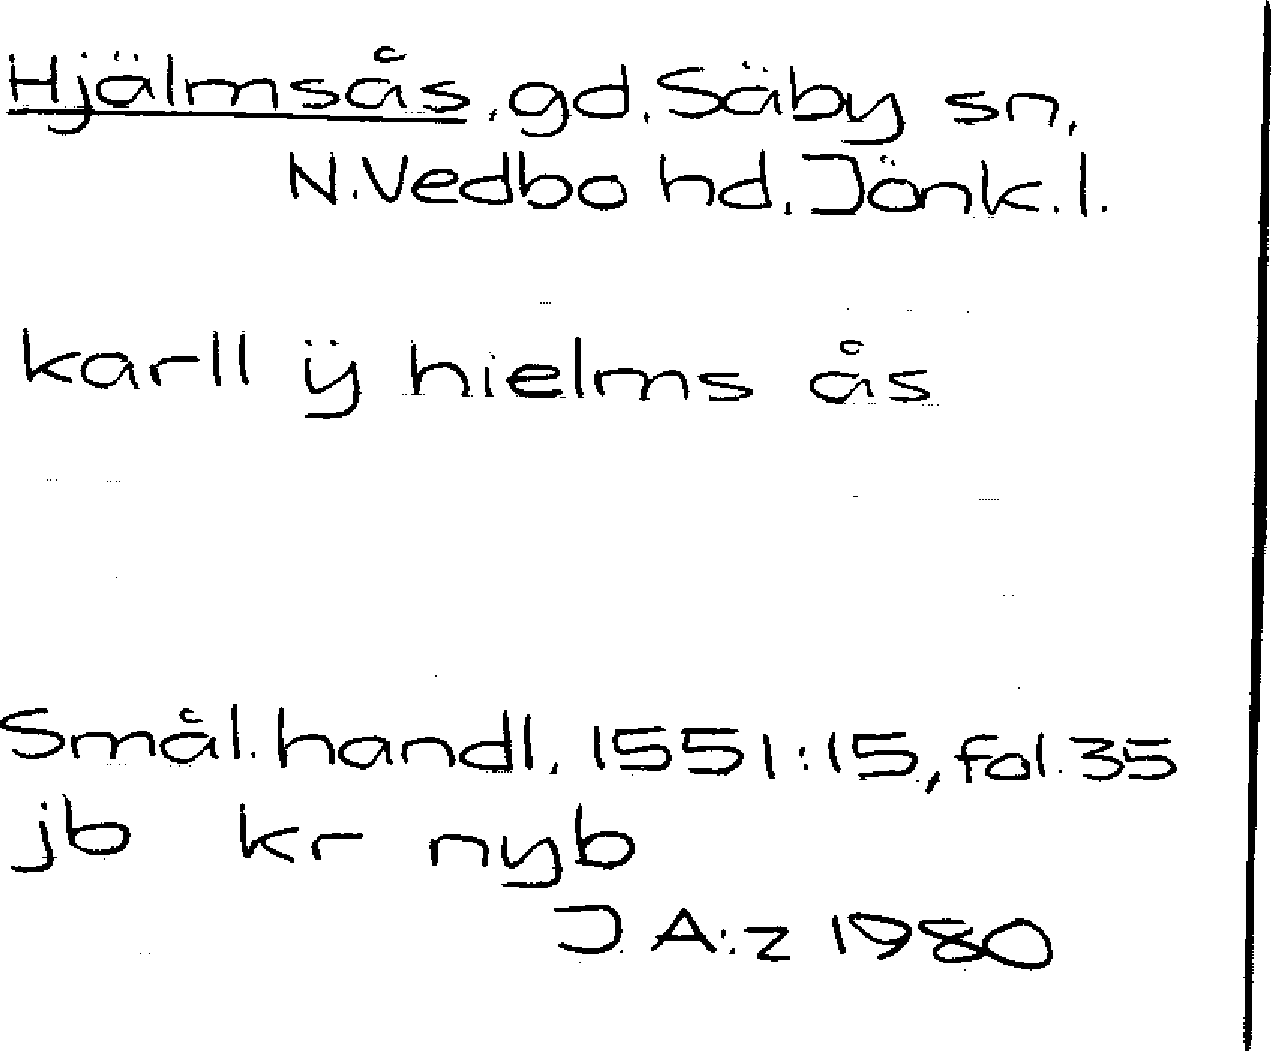 Hjälmsås, gd. Säby sn,
N. Vedbo hd, Jönk. l.
karll ÿ hielms ås
Smål. handl, 1551:15, fol. 35
jb kr nyb
J. A:z 1980